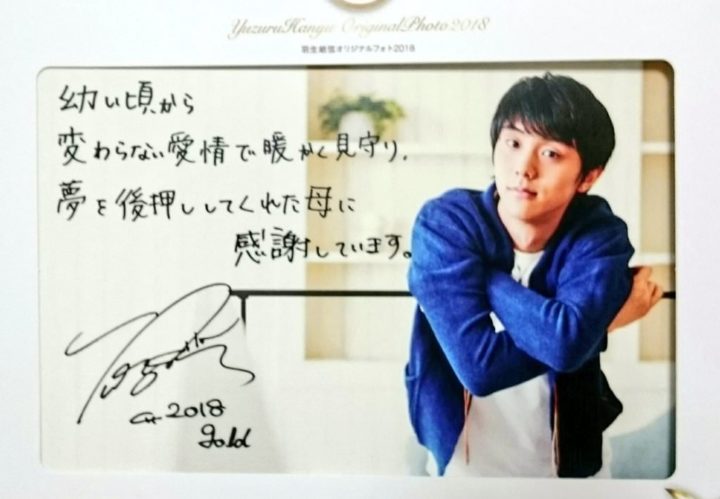 YuzuruHanyu OriginalPhoto2018
羽生結弦オリジナルフォト2018
幼い頃から
変わらない愛情で暖かく見守り、
夢を後押ししてくれた母に
感謝しています。
2018
gold